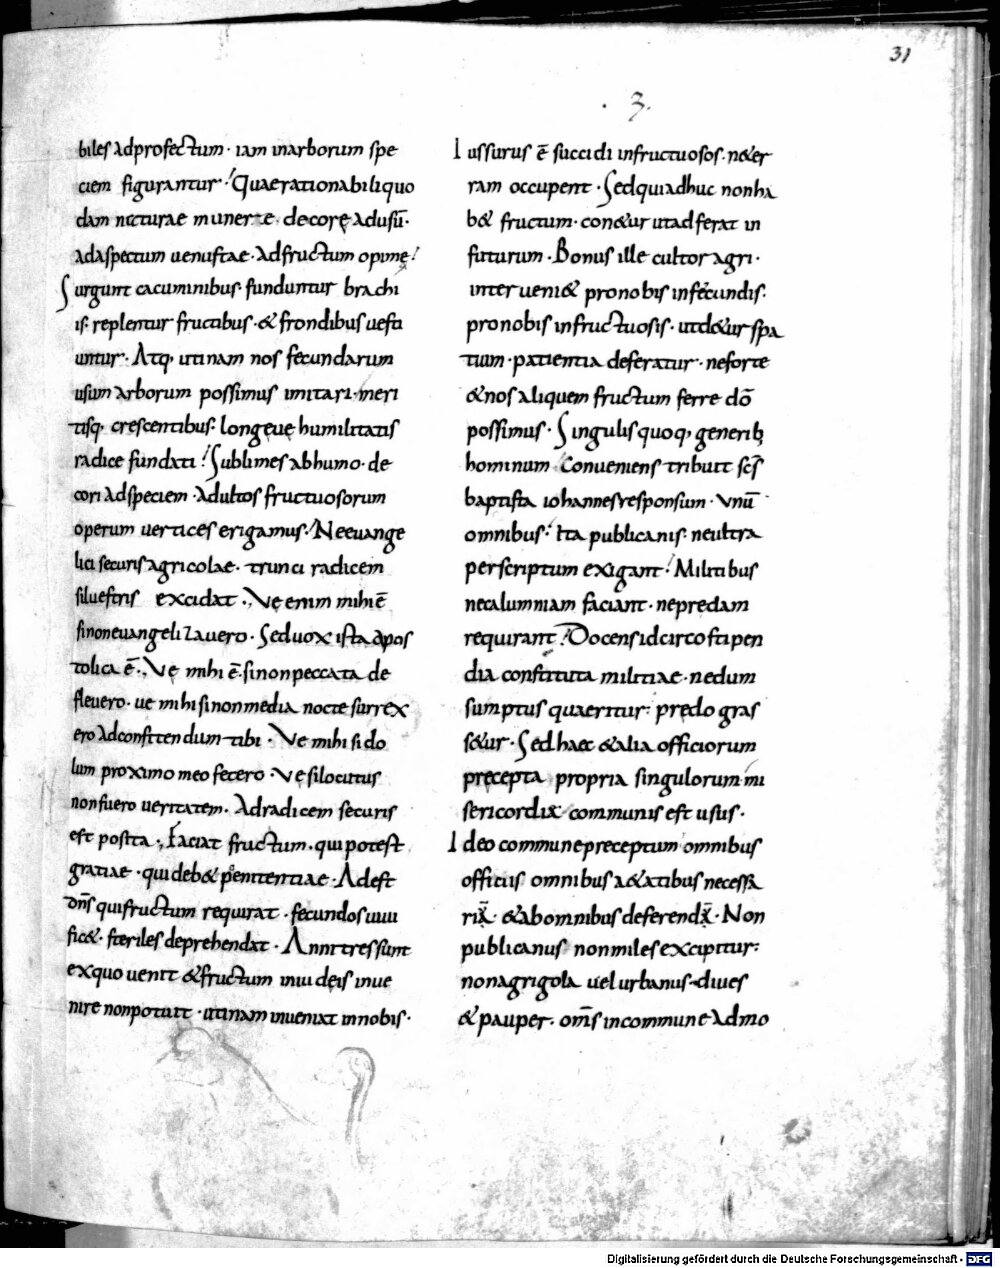 31
3.
biles adprofectum · iam inarborum spe
ciem figurantur · Quaerationabiliquo
dam naturae munere · decorę adusū ·
adaspectum uenustae · adfructum opimę
Surgunt cacuminibus · funduntur brachi
is · replentur fructibus · & frondibus uesti
untur · Atq; utinam nos fecundarum
usum arborum possimus imitari · meri
tisq; crescentibus · longęuę humilitatis
radice fundati · Sublimes abhumo · de
cori adspeciem · adultos fructuosorum
operum uertices erigamus · Neeuange
lici securis agricolae · trunci radicem
siluestris excidat · Vę enim mihi ē
sinoneuangelizauero · Seduox ista apos
tolica ē · Vę mihi ē · sinonpeccata de
fleuero · ue mihi sinonmedia nocte surrex
ero adconfitendum tibi · Ve mihi si do
lum proximo meo fecero · Ve silocutus
nonfuero ueritatem · Adradicem securis
est posita · Faciat fructum · qui potest
gratiae · qui deb& penitentiae · Adest
dn̄s quifructum requirat · fecundosuiui
fic& · steriles deprehendat · Annitressunt
exquo uenit & fructum iniudeis inue
nire nonpotuit · utinam inueniat innobis ·
Iussurus ē succidi infructuosos · ne&er
ram occupent · Sedquiadhuc nonha
b& fructum · con&ur utadferat in
futurum · Bonus ille cultor agri ·
interueni& pronobis infecundis ·
pronobis infructuosis · utd&ur spa
tium · patientia deferatur · neforte
& nos aliquem fructum ferre dō
possimus · Singulis quoq; generib;
hominum conueniens tribuit sc̄s
baptista iohannes responsum · Vnū
omnibus · Ita publicanis · neultra
perscriptum exigant · Militibus
necalumniam faciant · nepredam
requirant · Docens idcirco stipen
dia constituta militiae · nedum
sumptus quaeritur · predo gras
s&ur · Sed haec & alia officiorum
pręcepta propria singulorum · mi
sericordiae communis est usus ·
Ideo commune preceptum omnibus
officiis omnibus a&atibus necessa
riū · & abomnibus deferendū · Non
publicanus nonmiles excipitur ·
nonagrigola uel urbanus · diues
& pauper · om̄s incommune admo
Digitalisierung gefördert durch die Deutsche Forschungsgemeinschaft - DFG